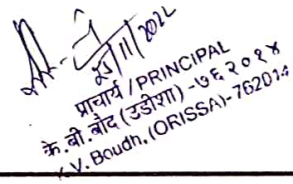 25/11/2022
प्राचार्य/PRINCIPAL
के.वी.बौद (उडीशा)-७६२०१४
K.V. Boudh, (ORISSA)-762014